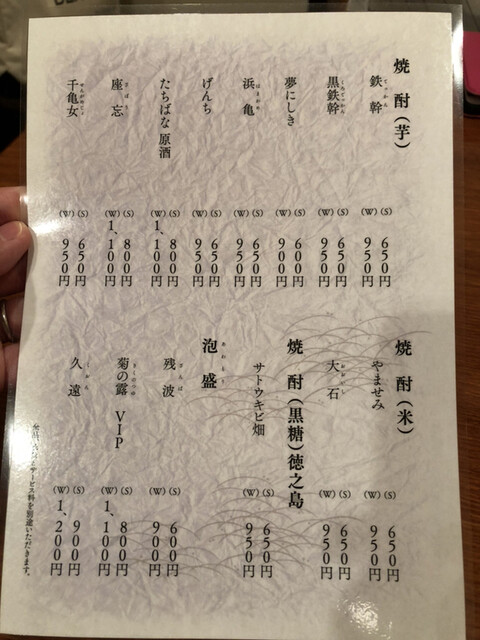 焼酎（芋）
鉄幹 てっかん (S) 650円 (W) 950円
黒鉄幹 くろてっかん (S) 650円 (W) 950円
夢にしき (S) 600円 (W) 900円
浜亀 はまかめ (S) 650円 (W) 950円
げんち (S) 650円 (W) 950円
たちばな原酒 (S) 800円 (W) 1、100円
座忘 ざぼう (S) 800円 (W) 1、100円
千亀女 (S) 650円 (W) 950円
焼酎（米）
やませみ (S) 650円 (W) 950円
大石 おおいし (S) 650円 (W) 950円
焼酎（黒糖）徳之島
サトウキビ畑 (S) 650円 (W) 950円
泡盛 あわもり
残波 ざんぱ (S) 600円 (W) 900円
菊の露 きくのつゆ VIP (S) 800円 (W) 1、100円
久遠 くおん (S) 900円 (W) 1、200円
サービス料を別途いただきます。